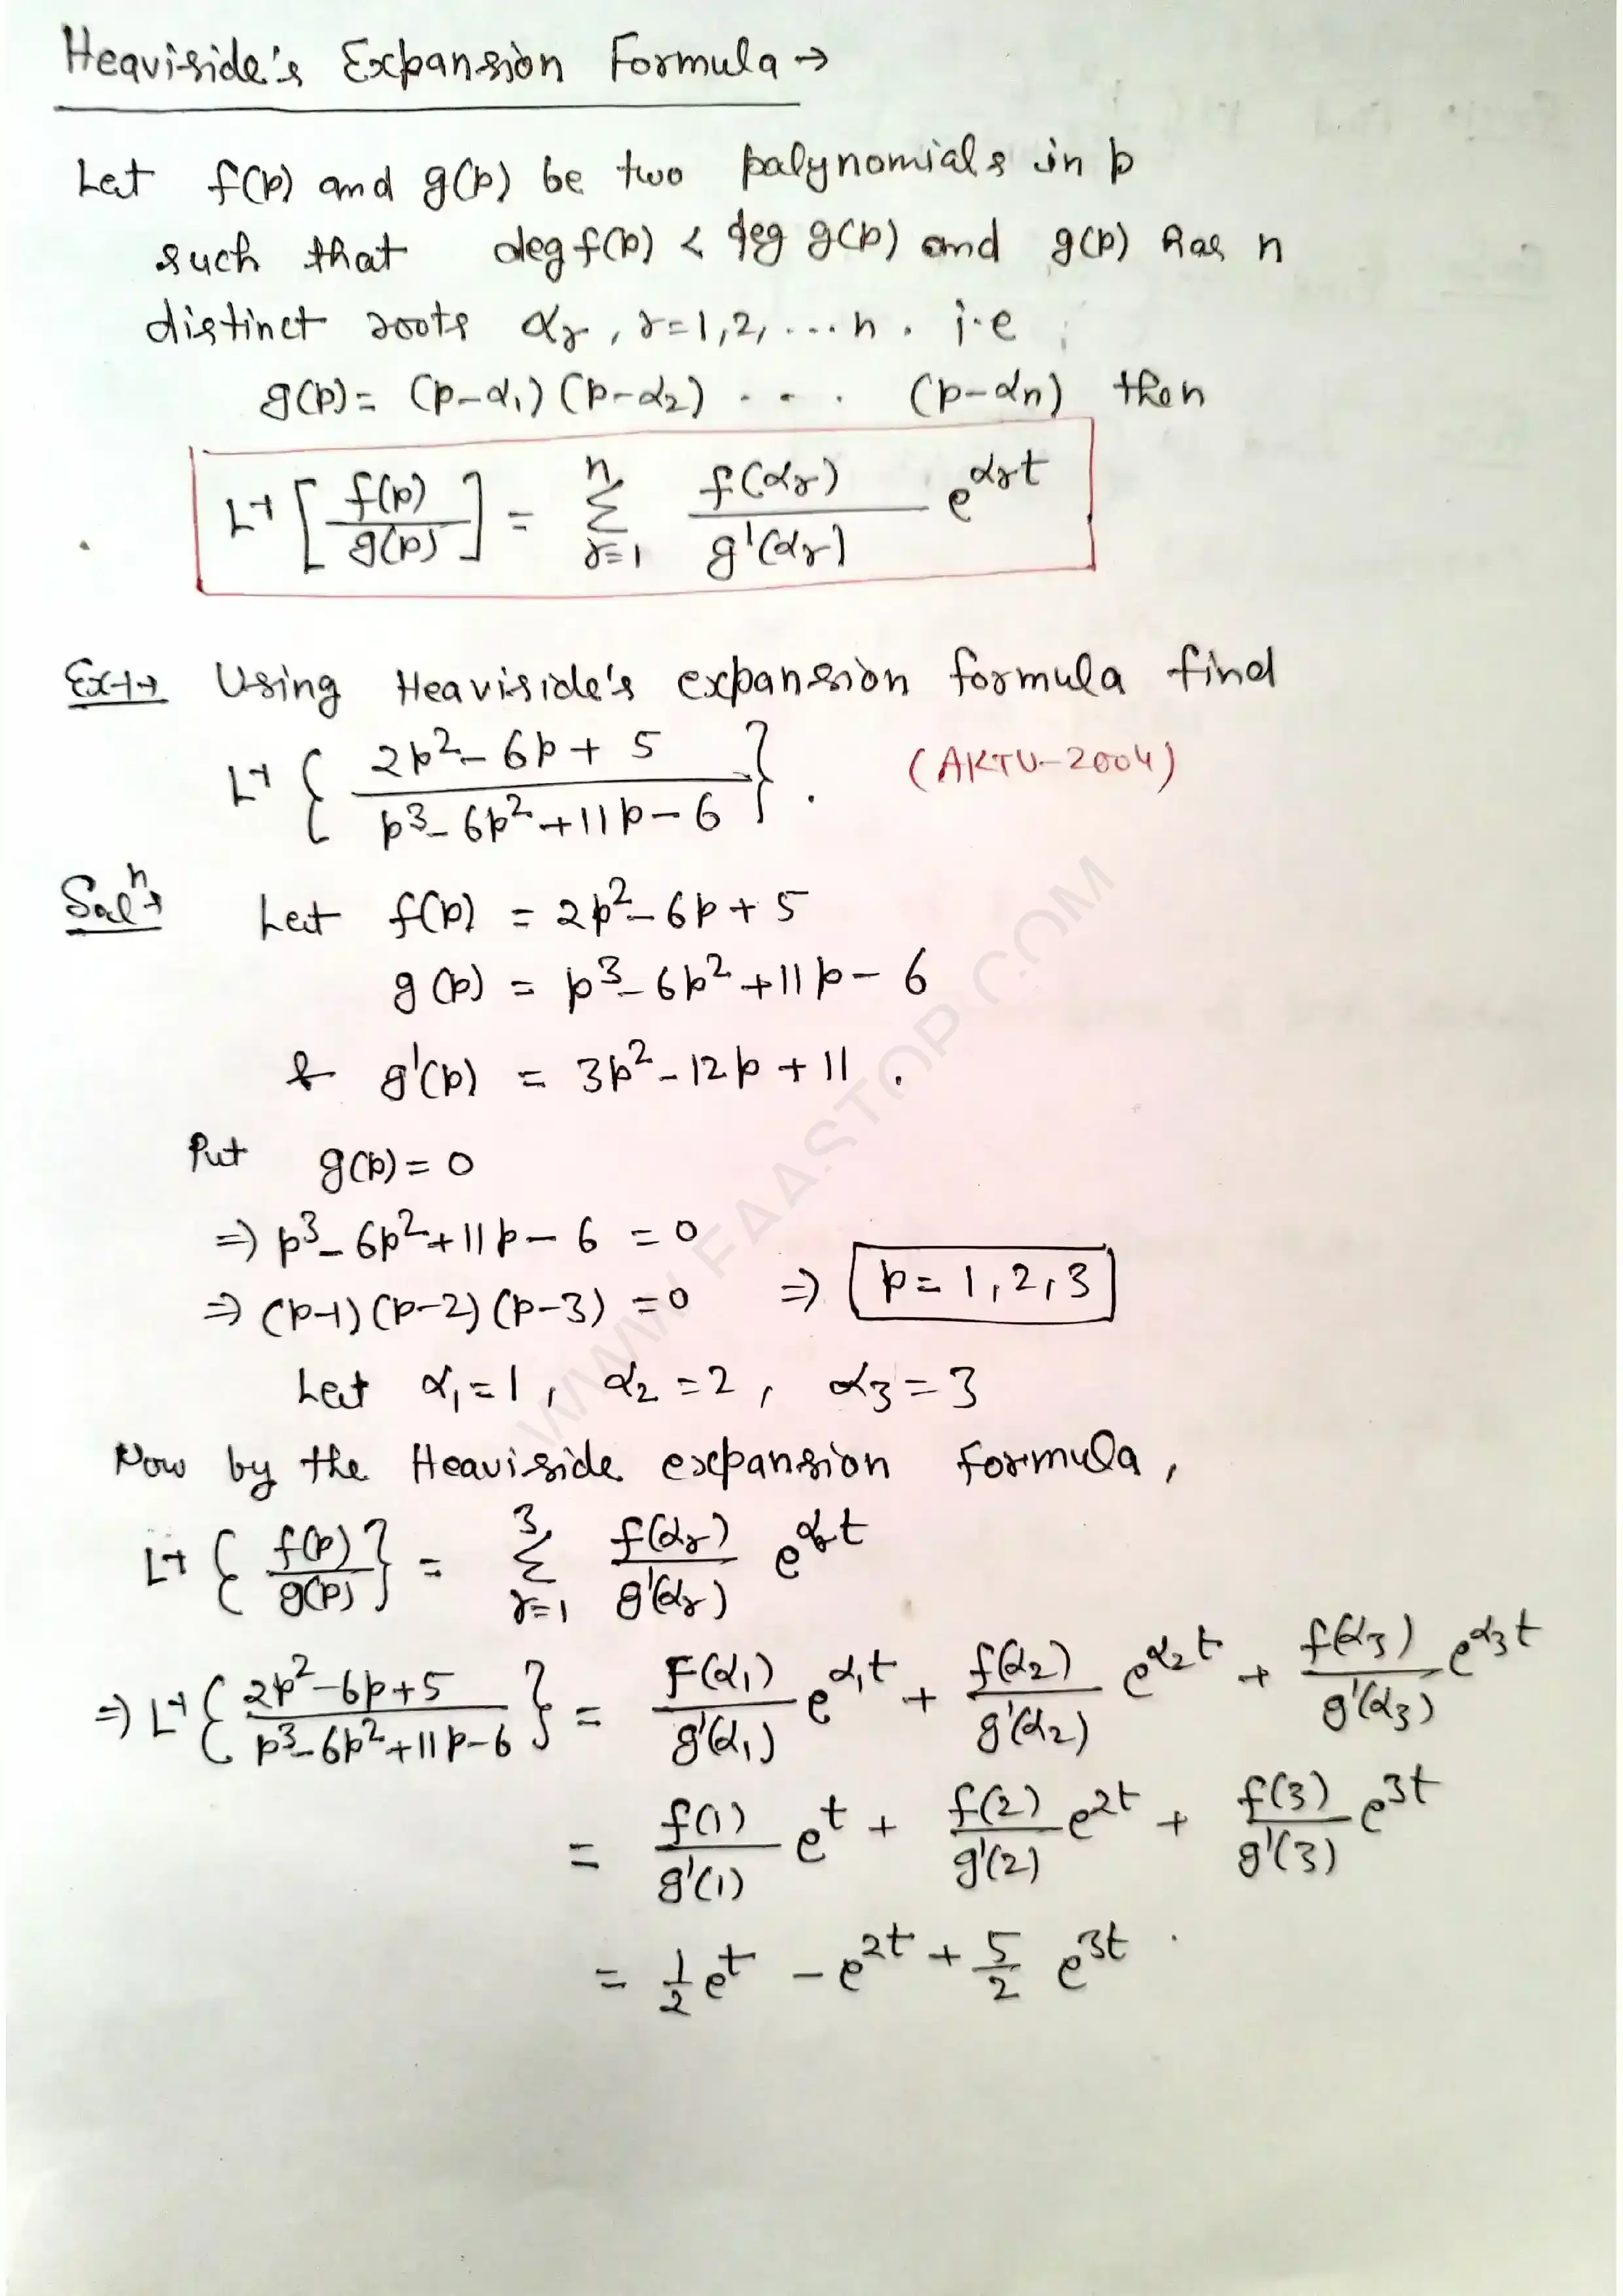 Heaviside's Expansion Formula →
Let f(p) and g(p) be two palynomials in p
such that deg f(p) < deg g(p) and g(p) has n
distinct roots αr, r=1,2,...n. i.e
g(p) = (p-α1)(p-α2) . . . (p-αn) then
L⁻¹[f(p)/g(p)] = Σ_{r=1}^{n} f(αr)/g'(αr) e^{αrt}
Ex-1→ Using Heaviside's expansion formula find
L⁻¹{(2p²-6p+5)/(p³-6p²+11p-6)}. (AKTU-2004)
Solⁿ→ Let f(p) = 2p²-6p+5
g(p) = p³-6p²+11p-6
& g'(p) = 3p²-12p+11.
Put g(p)=0
⇒ p³-6p²+11p-6 = 0
⇒ (p-1)(p-2)(p-3) =0 ⇒ p=1,2,3
Let α1=1, α2=2, α3=3
Now by the Heaviside expansion formula,
L⁻¹{f(p)/g(p)} = Σ_{r=1}^{3} f(αr)/g'(αr) e^{αrt}
⇒ L⁻¹{(2p²-6p+5)/(p³-6p²+11p-6)} = F(α1)/g'(α1) e^{α1t} + f(α2)/g'(α2) e^{α2t} + f(α3)/g'(α3) e^{α3t}
= f(1)/g'(1) e^t + f(2)/g'(2) e^{2t} + f(3)/g'(3) e^{3t}
= 1/2 e^t - e^{2t} + 5/2 e^{3t}.
WWW.FAASTOP.COM